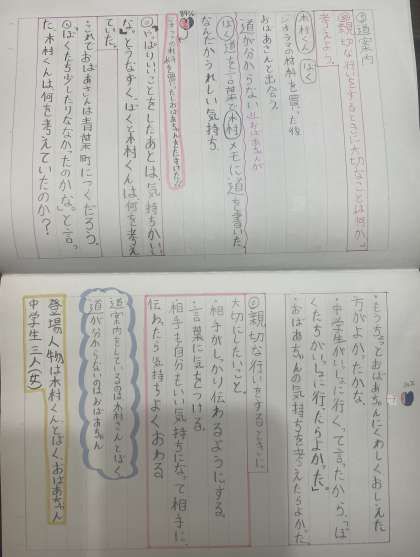 ③道案内
㋱親切な行いをするときに大切なことは何か。
考えよう。
木村くん ぼく
ジオラマの材料を買った後
おばあさんと出会う。
道が分からないおばあさんが
ぼく道を言葉で木村メモに道を書いた。
なんだかうれしい気持ち。
いいことをしたあとは、気持ちがいい
な。」とうなずく、ぼくと木村くんは何を考え
ていた。
これでおばあさんは青葉町につくだろう。
ぼくたち少したりなかったのかな。と言っ
た木村くんは何を考えていたのか？
・もうちょっとおばあちゃんにくわしくおしえた
方がよかたかな。
・中学生がいっしょに行く。って言ったから、「ぼ
くたちがいっしょに行ってたらよかった。」
・おばあちゃんの気持ちを考えたらよかった。
親切な行いをするときに
大切にしたいこと。
・相手がしっかり伝わるようにする。
・言葉に気をつける。
・相手も自分もいい気持ちになって相手に
伝わったら気持ちよくおわる
道案内をしているのは木村さんとぼく
道が分からないのはおばあちゃん
登場人物は木村くんとぼく、おばあちゃん
中学生三人(女)